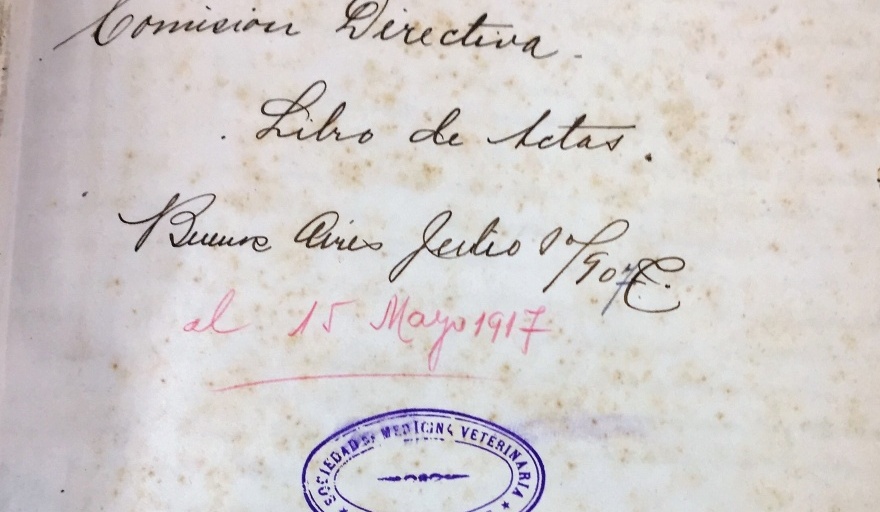 Comision Directiva.
Libro de Actas.
Buenos Aires Julio 1º/907
al 15 Mayo 1917
SOCIEDAD DE MEDICINA VETERINARIA